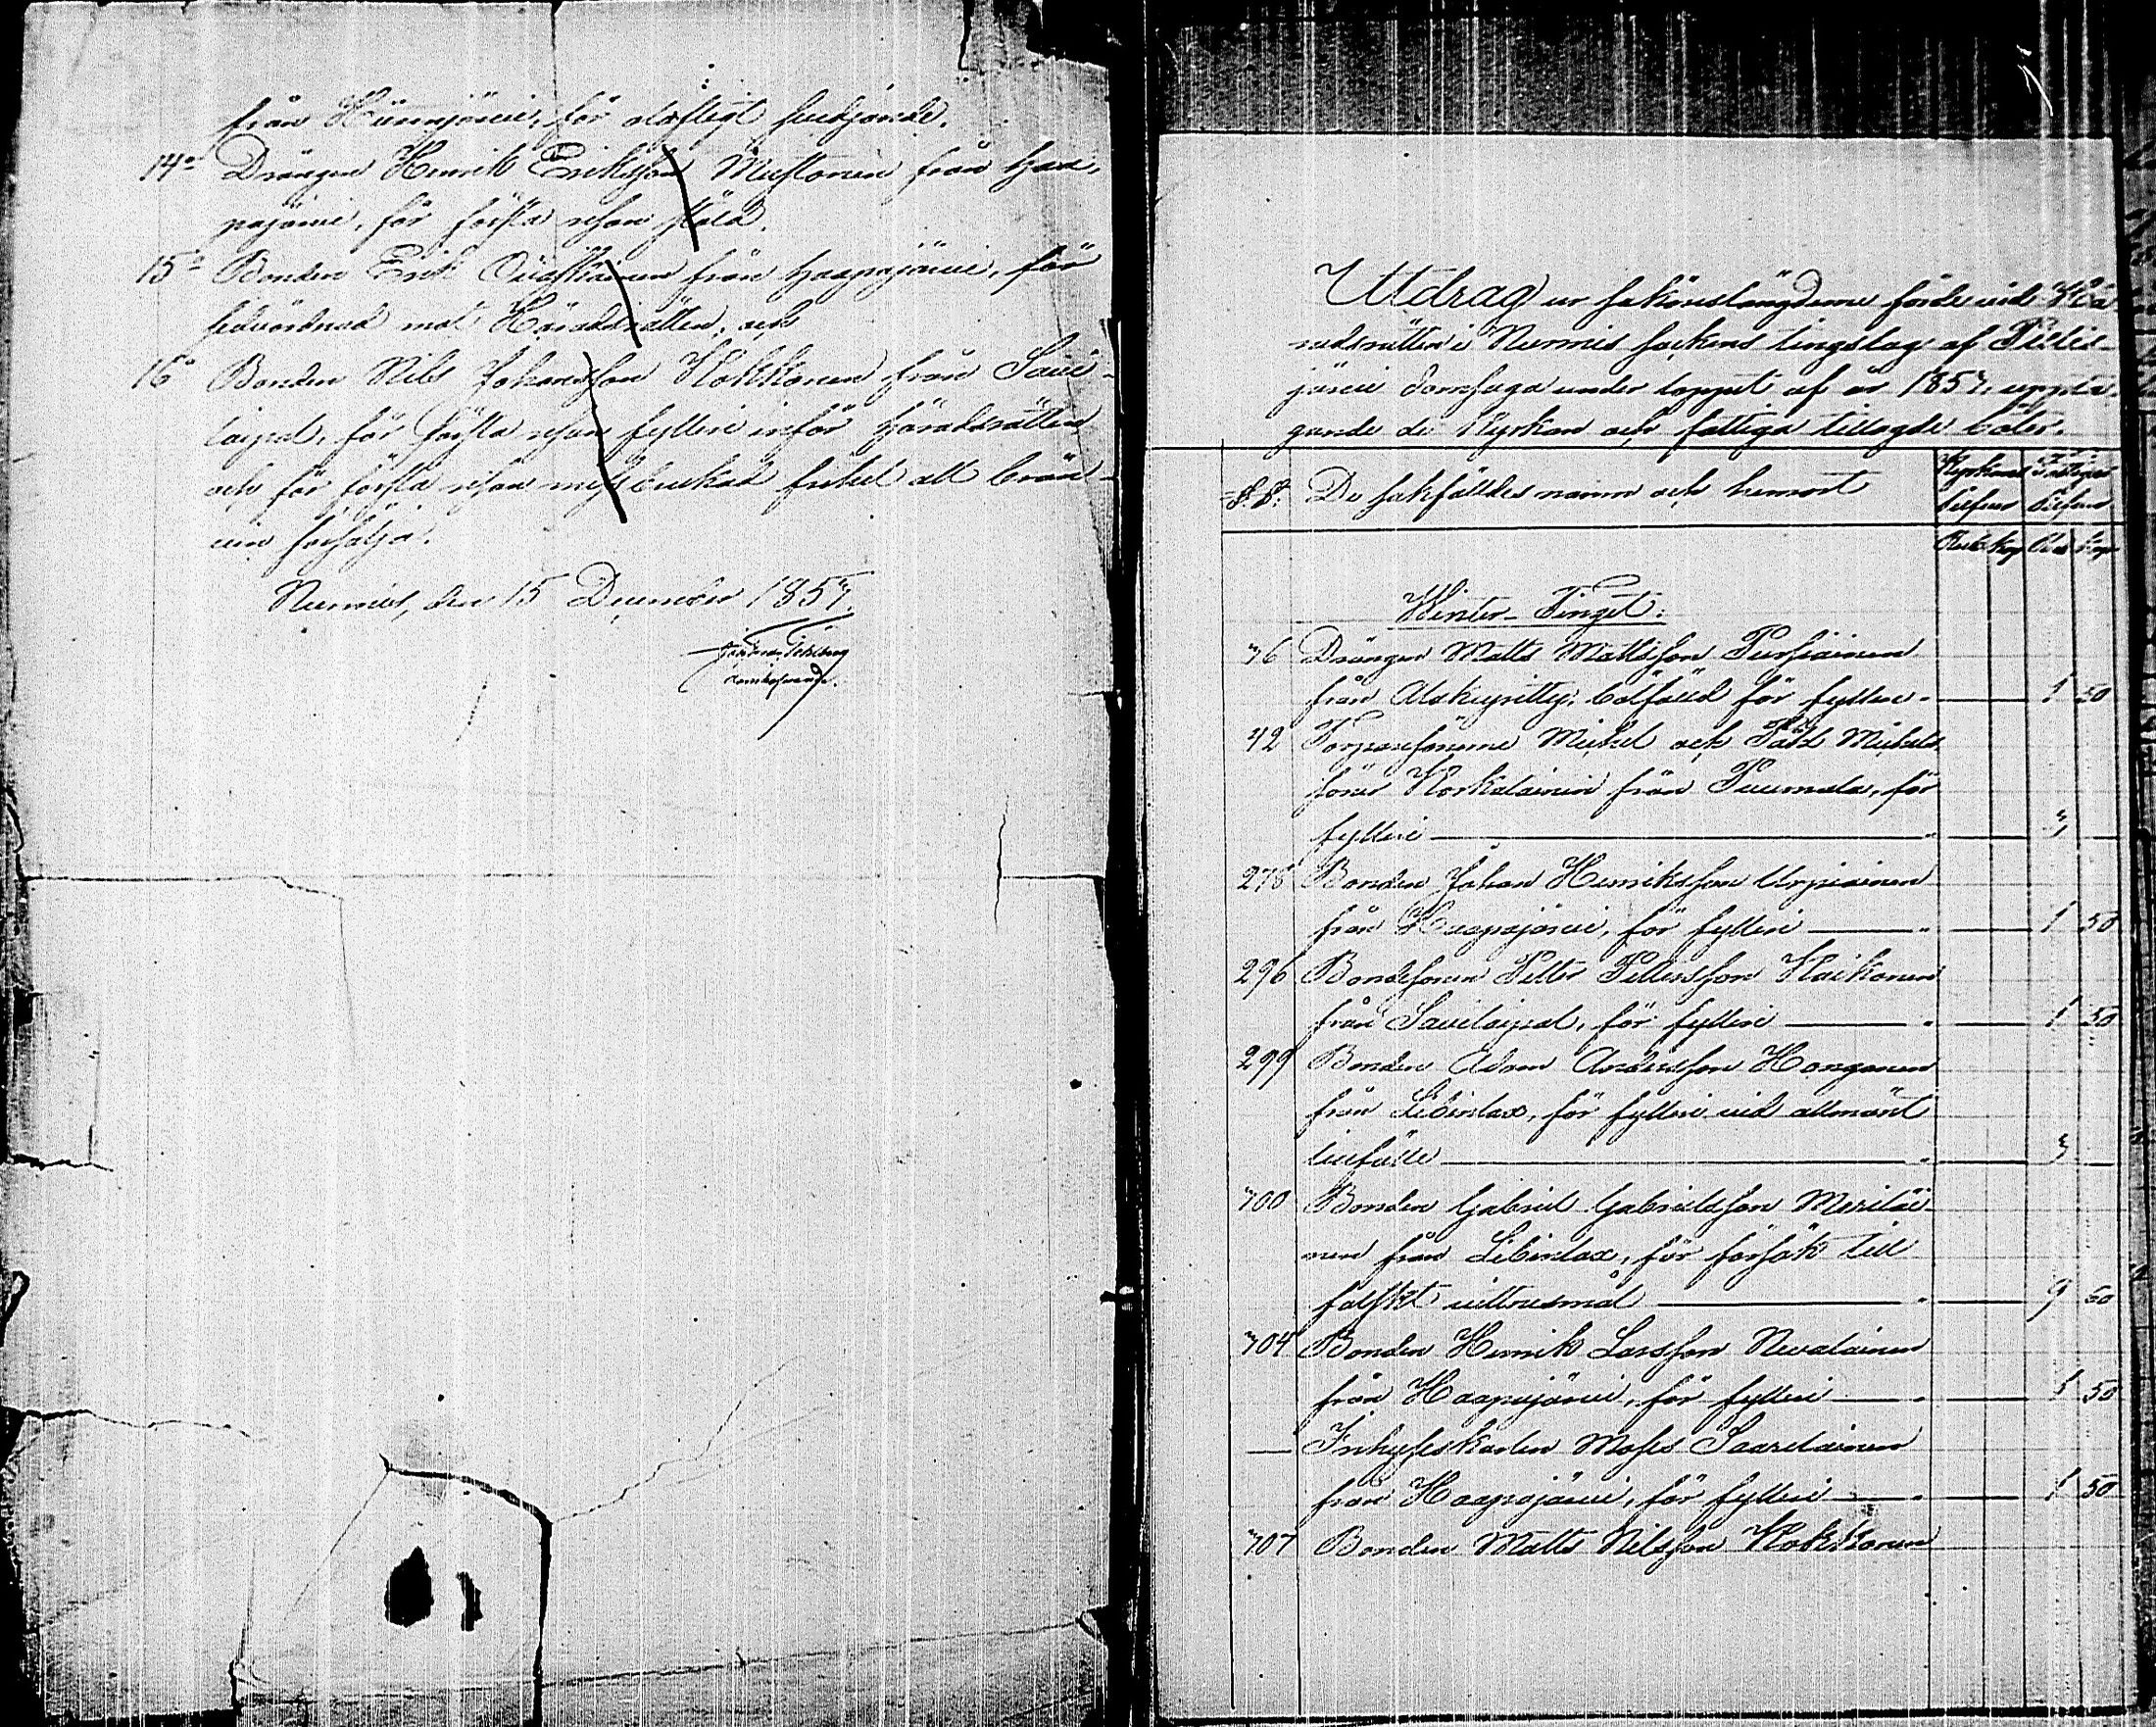 från Hünnjärvi, för olofligt
14o Drängen Henrik Eriksson Mustonen från Haa-
pajärvi, för första resan stöld.
15o Bonden Erik från Haapajärvi, för
mot Häradsrätten, och
16o Bonden Nils Johansson Kokkonen från Savi-
laipal, för första resan fylleri inför Häradsrätten
och för första resan missbrukad frihet att brän-
vin försälja.
Nurmis, den 15 December 1857.
Domhafvande.
Utdrag ur saköreslängderne förde vid Hä-
radsrätten i Nurmis sockens tingslag af Pielis-
järvi domsaga under loppet af år 1857, uppta-
gande de Kyrkan och fattiga tillagde böter.
De sakfälldes namn och hemort
Kyrkans Fattiges
Rub. Kop. Rub. Kop.
Winter-Tinget:
76 Drängen Matts Mattsson Pursiainen
från bötfäld för fylleri 1 50
42 Torparesönerne Mickel och Påhl Mickels-
söner Korkalainen från Puumala, för
fylleri 3
278 Bonden Johan Henriksson Urpiainen
från Haapajärvi, för fylleri 1 50
296 Bondesonen Petter Pettersson Kaikonen
från Savilaipal, för fylleri 1 50
299 Bonden Adam Andersson Honganen
från Libinlax, för fylleri vid allmänt
3
700 Bonden Gabriel Gabrielsson Meriläi-
nen från Libinlax, för försök till
falskt vittnesmål 9 60
704 Bonden Henrik Larsson Nevalainen
från Haapajärvi, för fylleri 1 50
— Inhyseskarlen Moses Saarelainen
från Haapajärvi, för fylleri 1 50
707 Bonden Matts Nilsson Kokkonen